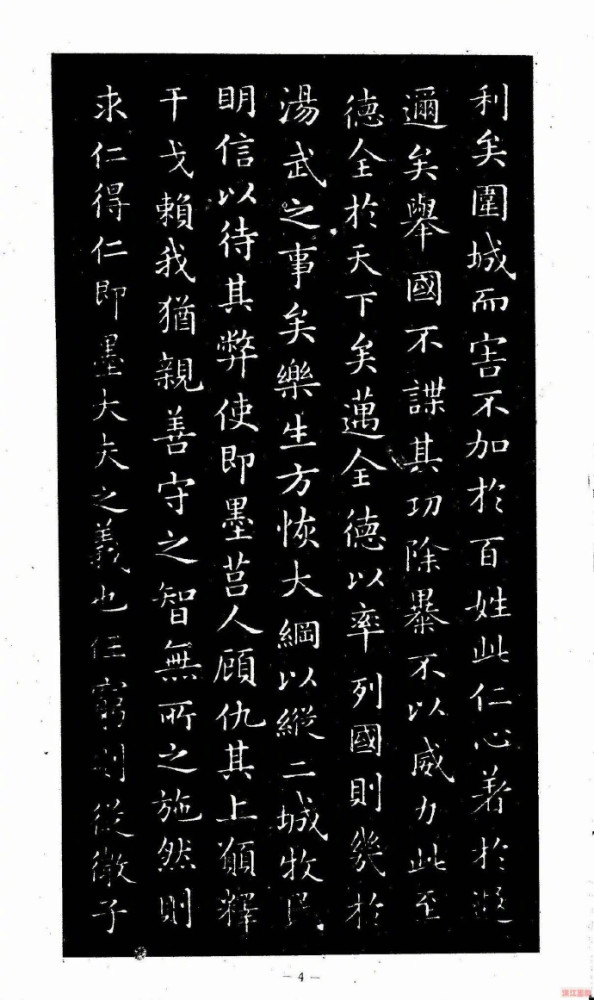 利矣圍城而害不加於百姓此仁心著於遐
邇矣舉國不謀其功除暴不以威力此至
德全於天下矣邁全德以率列國則幾於
湯武之事矣樂生方恢大綱以縱二城牧民
明信以待其弊使即墨莒人顧仇其上願釋
干戈賴我猶親善守之智無所之施然則
求仁得仁即墨大夫之義也仕窮則從微子
— 4 —